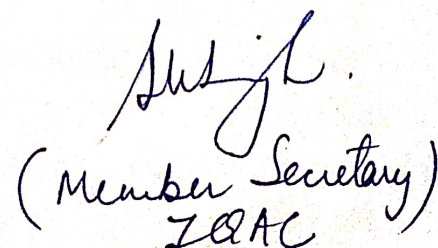 (Member Secretary)
IQAC